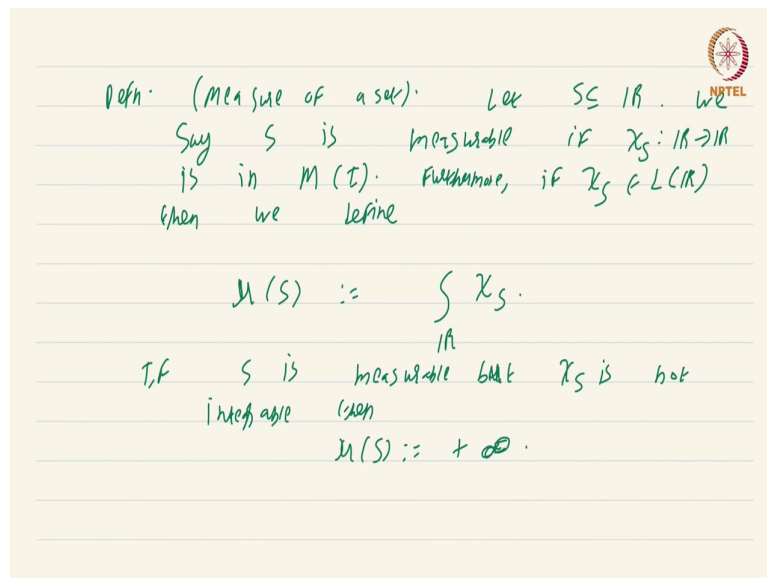 Defn. (Measure of a set). Let S ⊆ ℝ. We
NPTEL
Say S is measurable if χ_S : ℝ → ℝ
is in M(I). Furthermore, if χ_S ∈ L(ℝ)
then we define
μ(S) := ∫_ℝ χ_S.
If S is measurable but χ_S is not
integrable then
μ(S) := +∞.